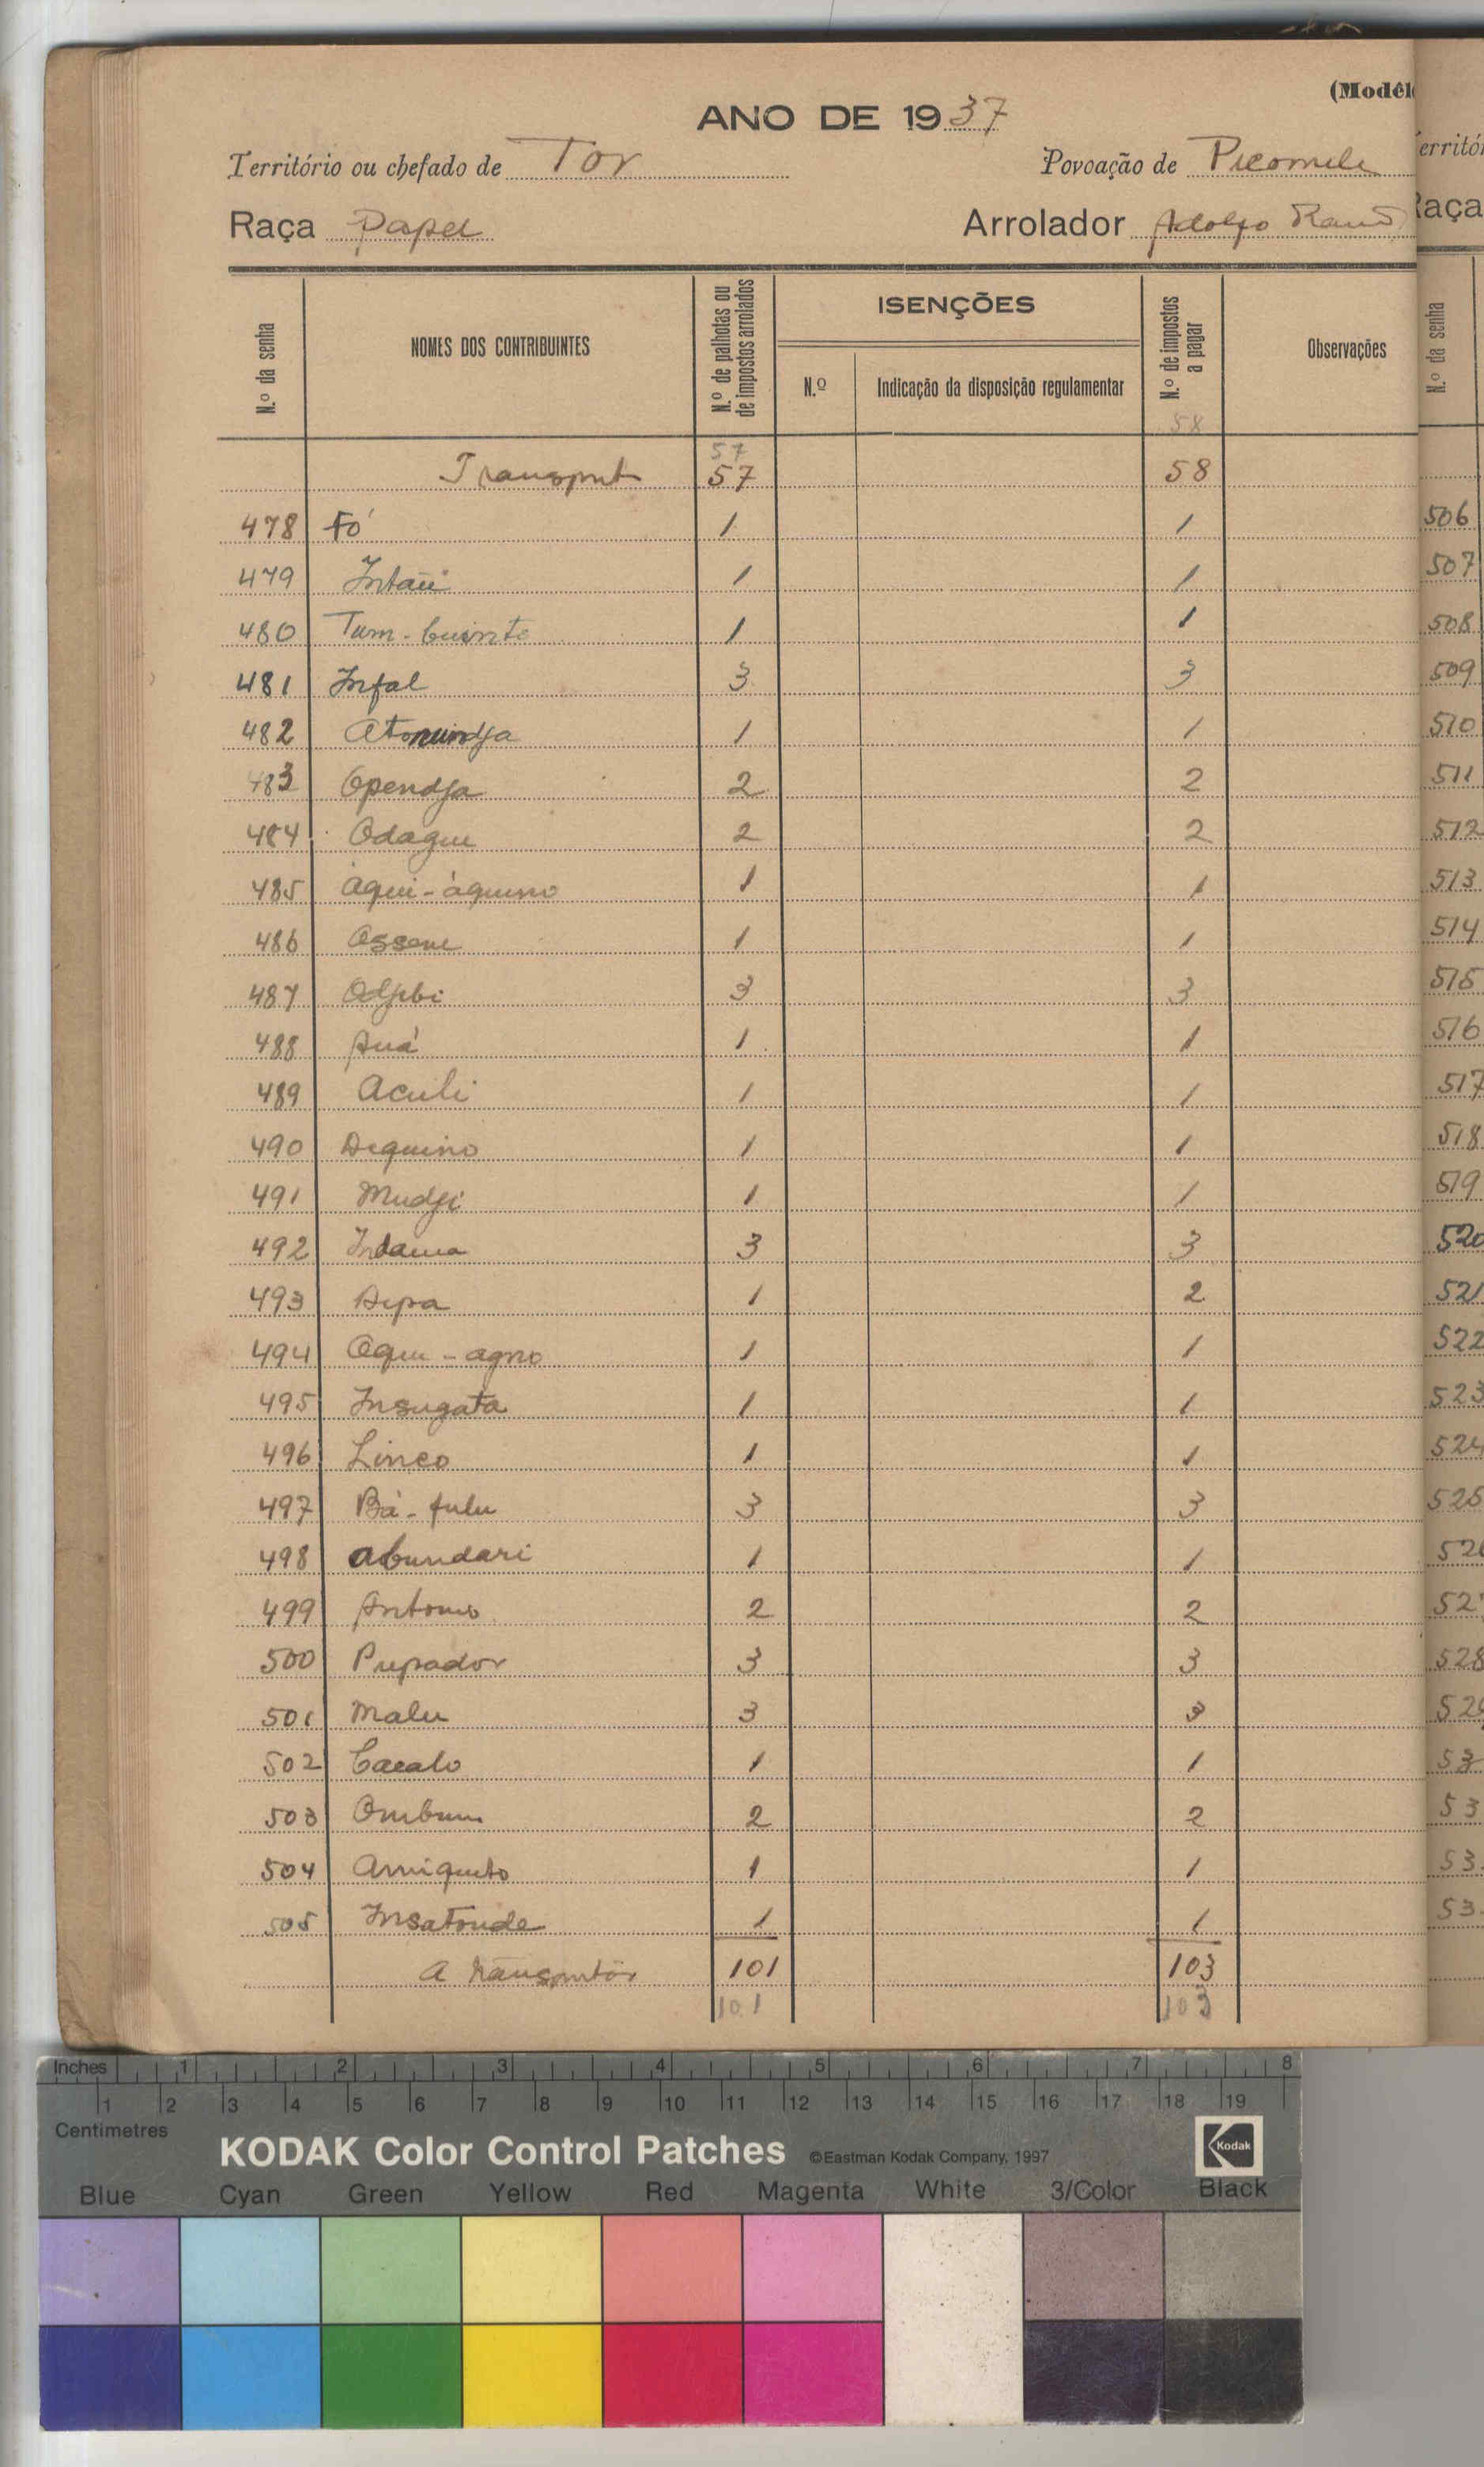 (Modêl
ANO DE 1937
Território ou chefado de Tor Povoação de Picomile
Raça Papel Arrolador Adolfo
N.º da senha NOMES DOS CONTRIBUINTES N.º de palhotas ou de impostos arrolados ISENÇÕES N.º Indicação da disposição regulamentar N.º de impostos a pagar Observações
57 58
Transport 57 58
478 Fó 1 1
479 Intaii 1 1
480 Tum-buinte 1 1
481 Infal 3 3
482 1 1
483 Opendja 2 2
484 Odague 2 2
485 àqui-àquino 1 1
486 Assene 1 1
487 Odjibi 3 3
488 Auá 1 1
489 Aculi 1 1
490 Dequino 1 1
491 Mudji 1 1
492 Indama 3 3
493 1 2
494 Aqui-agno 1 1
495 Insugata 1 1
496 Linco 1 1
497 Bà-fulu 3 3
498 Abundari 1 1
499 Antonio 2 2
500 Pupador 3 3
501 Malu 3 3
502 Cacalo 1 1
503 Ombum 2 2
504 Amiquito 1 1
505 Insatonde 1 1
A transportar 101 103
101 103
erritó
Raça
N.º da senha
506
507
508
509
510
511
512
513
514
515
516
517
518
519
520
521
522
523
524
525
52
52
528
52
53
53
53
53
Inches 1 2 3 4 5 6 7 8
1 2 3 4 5 6 7 8 9 10 11 12 13 14 15 16 17 18 19
Centimetres
KODAK Color Control Patches ©Eastman Kodak Company, 1997 Kodak
Blue Cyan Green Yellow Red Magenta White 3/Color Black